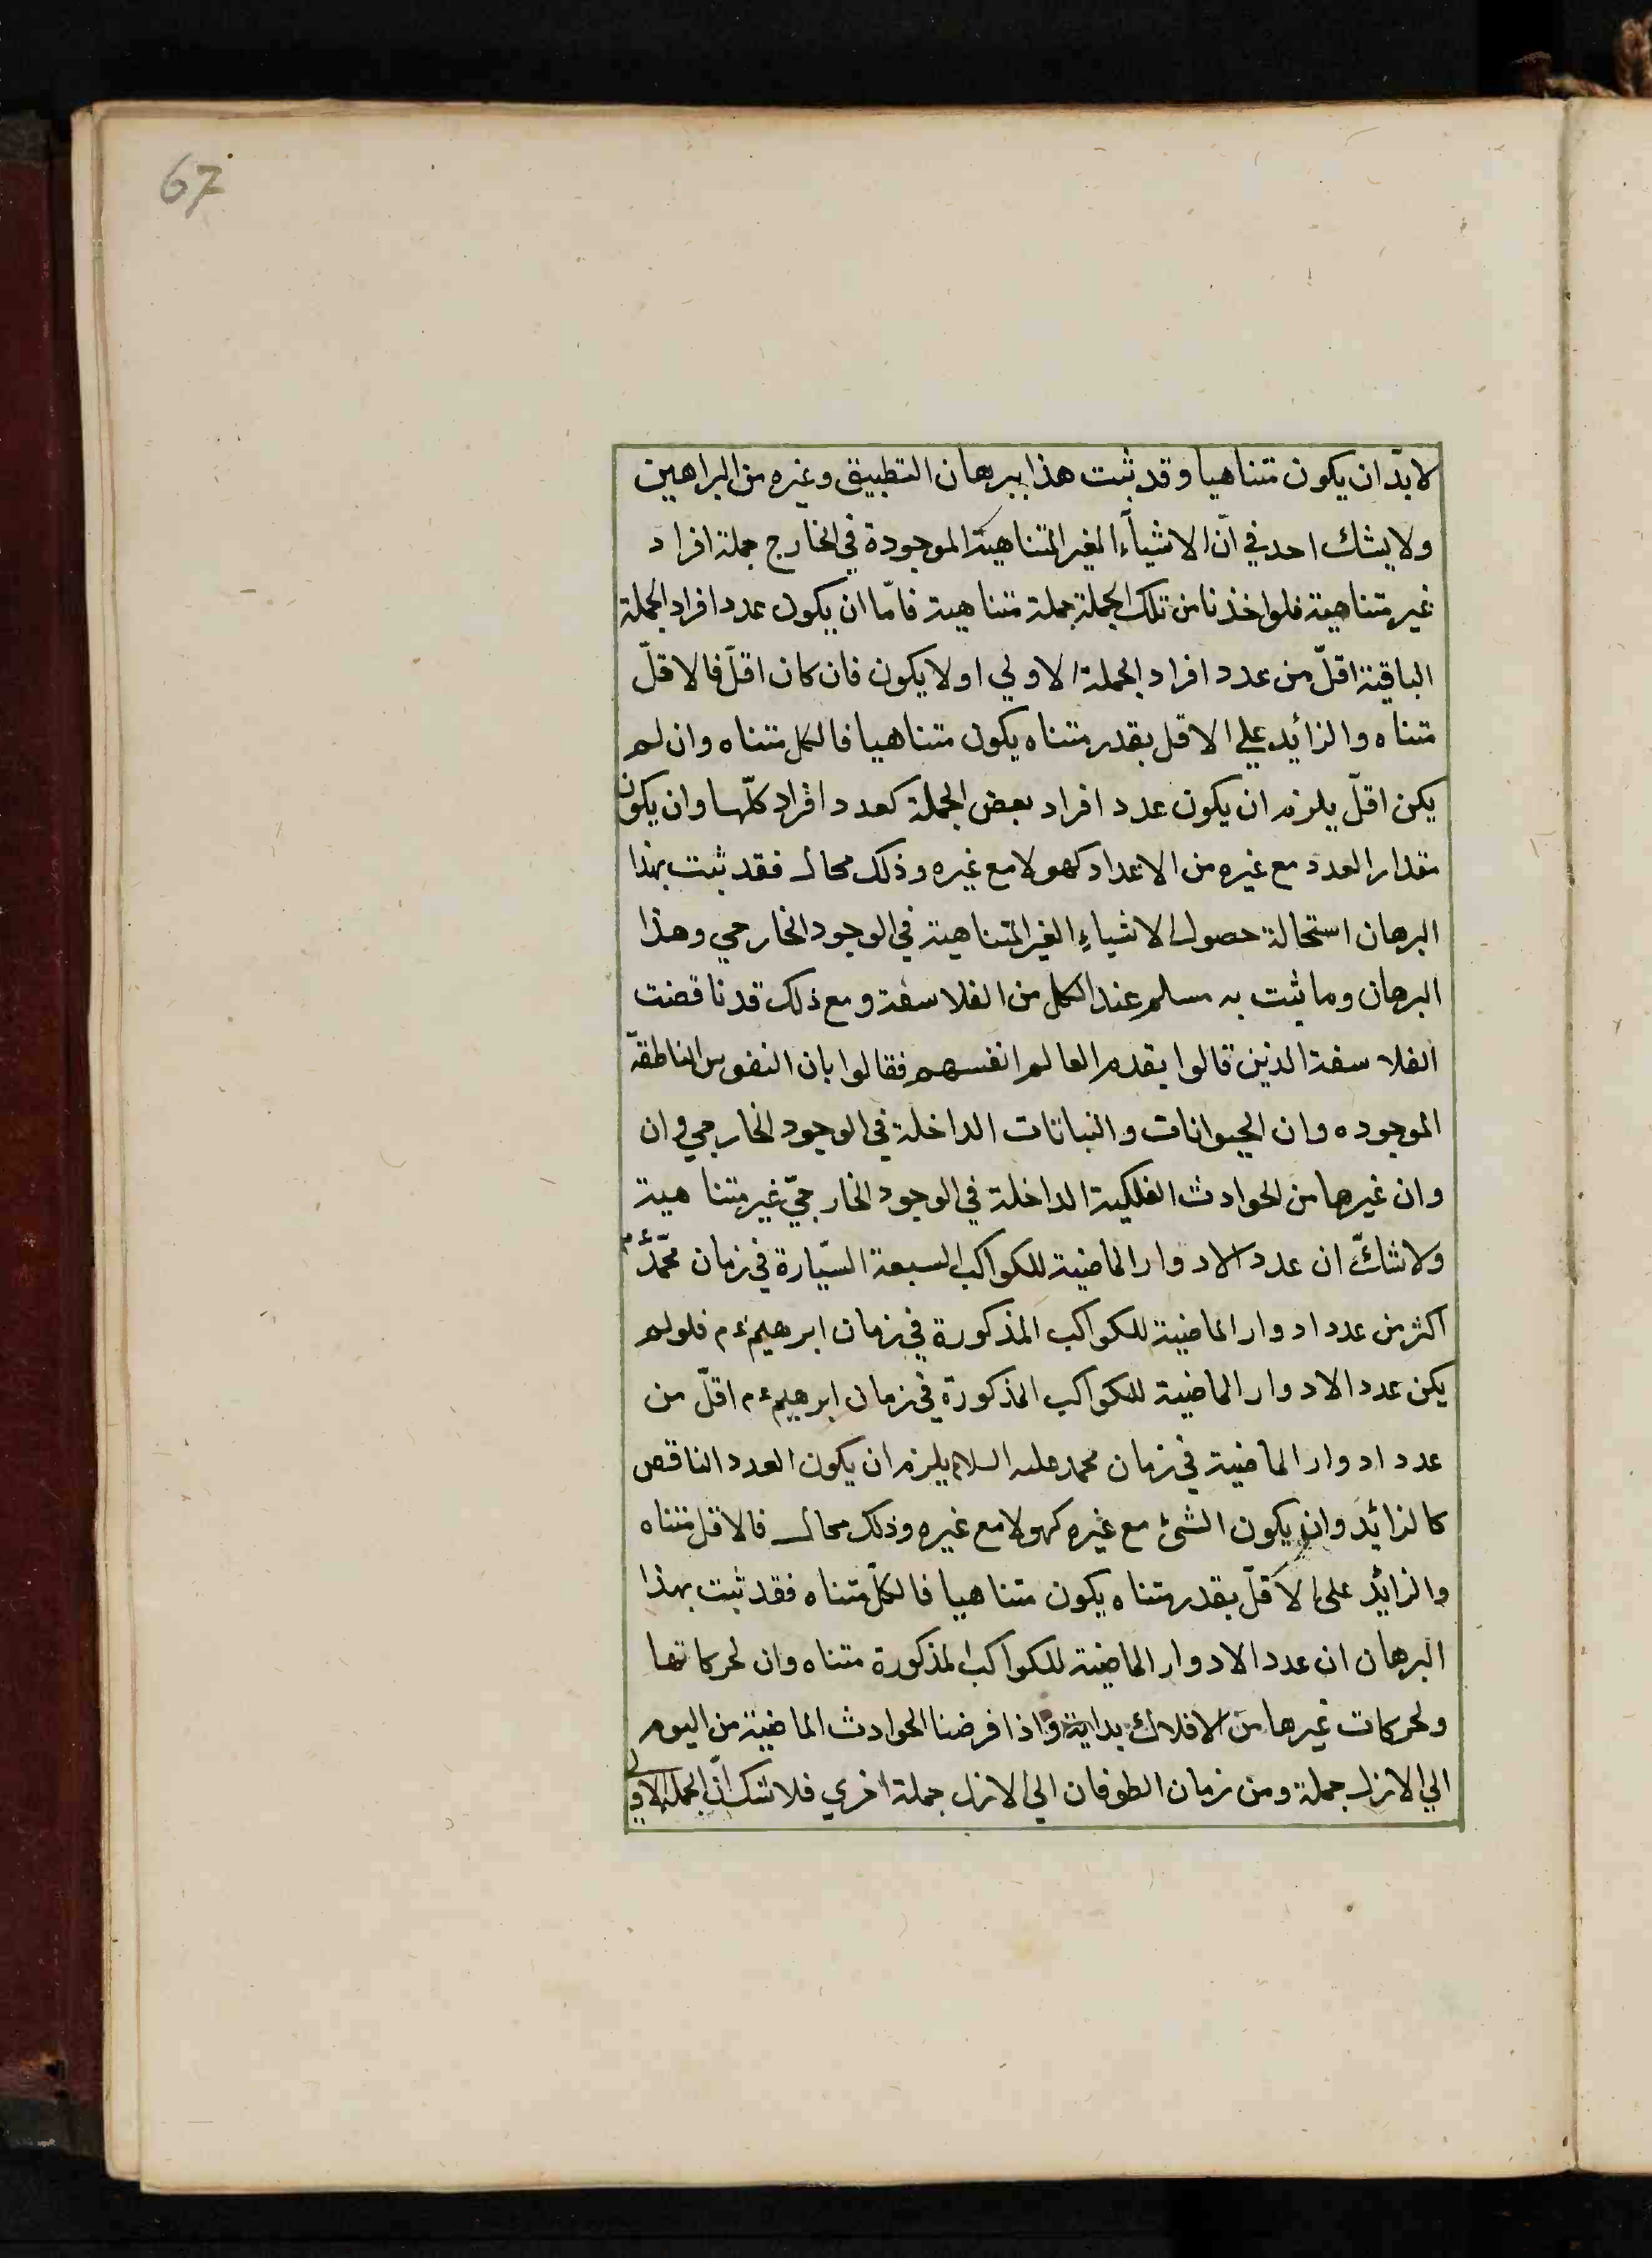 67
لابدّ ان يكون متناهيا وقد ثبت هذا ببرهان التطبيق وغيره من البراهين
ولا يشك احد في انّ الاشيآء الغير المتناهية الموجودة في الخارج جملة افراد
غير متناهية فلو اخذنا من تلك الجملة جملة متناهية فامّا ان يكون عدد افراد الجملة
الباقية اقلّ من عدد افراد الجملة الاولي او لا يكون فان كان اقلّ فالاقلّ
متناه والزائد علي الاقل بقدر متناه يكون متناهيا فالكل متناه وان لم
يكن اقلّ يلزم ان يكون عدد افراد بعض الجملة كعدد افراد كلّها وان يكون
مقدار العدد مع غيره من الاعداد كهو لا مع غيره وذلك محال فقد ثبت بهذا
البرهان استحالة حصول الاشياء الغير المتناهية في الوجود الخارجي وهذا
البرهان وما ثبت به مسلم عند الكل من الفلاسفة ومع ذلك قد ناقضت
الفلاسفة الذين قالوا بقدم العالم انفسهم فقالوا بان النفوس الناطقة
الموجوده وان الحيوانات والنباتات الداخلة في الوجود الخارجي وان
وان غيرها من الحوادث الفلكية الداخلة في الوجود الخارجيّ غير متناهية
ولا شكّ ان عدد الادوار الماضية للكواكب السبعة السيّارة في زمان محمّد ءم
اكثر من عدد ادوار الماضية للكواكب المذكورة في زمان ابرهيم ءم فلو لم
يكن عدد الادوار الماضية للكواكب المذكورة في زمان ابرهيم ءم اقلّ من
عدد ادوار الماضية في زمان محمد عليه السلام يلزم ان يكون العدد الناقص
كالزائد وان يكون الشئ مع غيره كهو لا مع غيره وذلك محال فالاقل متناه
والزائد على الاقلّ بقدر متناه يكون متناهيا فالكلّ متناه فقد ثبت بهذا
البرهان ان عدد الادوار الماضية للكواكب المذكورة متناه وان لحركاتها
ولحركات غيرها من الافلاك بداية واذا فرضنا الحوادث الماضية من اليوم
الي الازل جملة ومن زمان الطوفان الي الازل جملة اخري فلا شك انّ الجملة الاولي